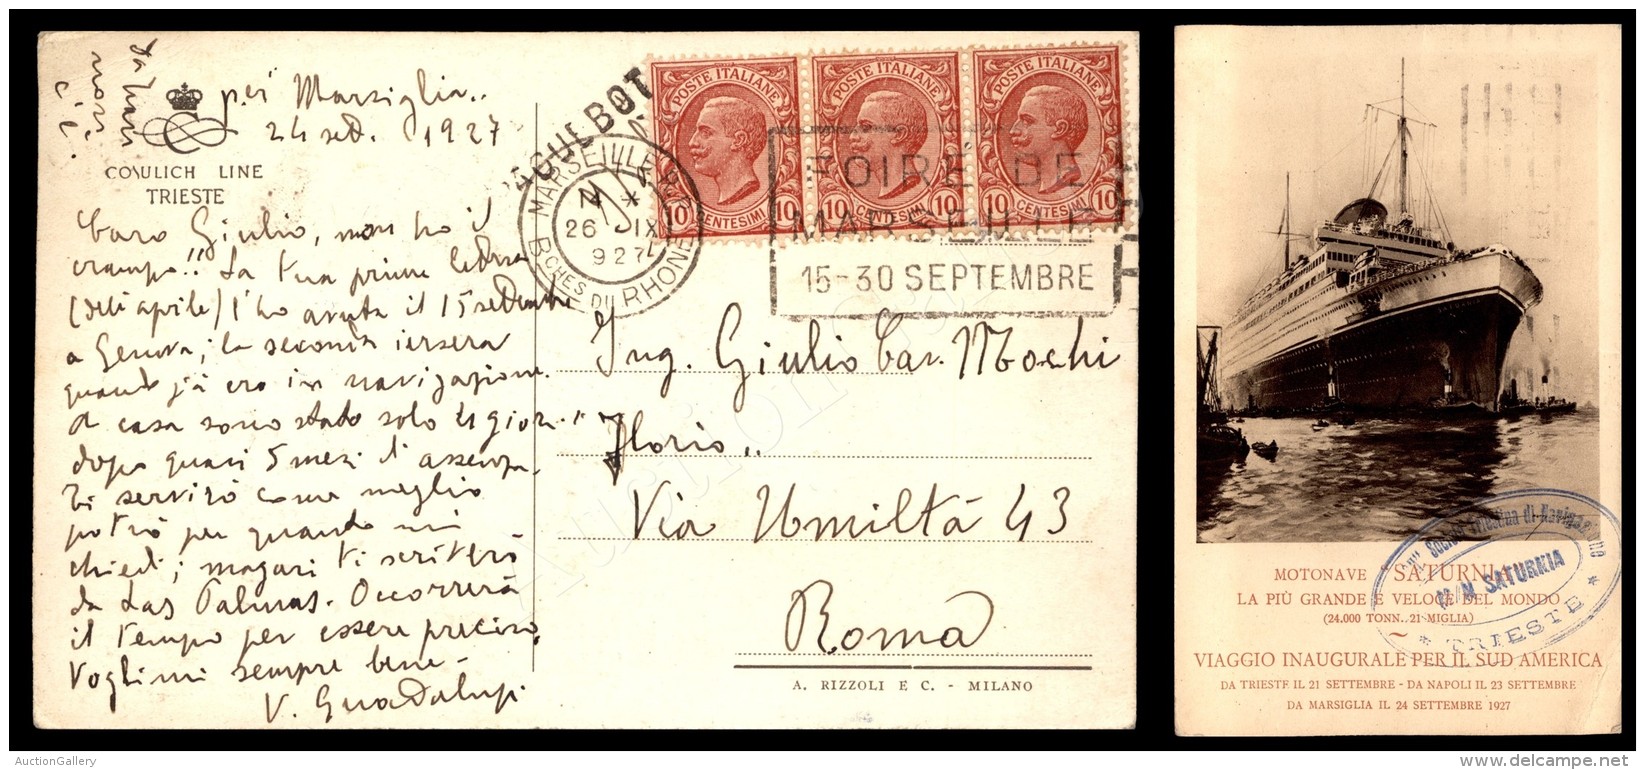 per Marsiglia..
24 sett. 1927
COSULICH LINE
TRIESTE
Caro Giulio, non ho il
crampo!! La tua prima lettera
(dell'aprile) l'ho avuta il 15 settembre
a Genova; la seconda iersera
quando già ero in navigazione.
A casa sono stato solo 4 giorni
dopo quasi 5 mesi d'assenza.
Ti servirò come meglio
potrò per quanto mi
chiedi; magari ti scriverò
da Las Palmas. Occorrerà
il tempo per essere preciso.
Voglimi sempre bene -
V. Guadalupi
PAQUEBOT
MARSEILLE GARE
14 *
26 IX
927
BCHES DU RHONE
POSTE ITALIANE
10 CENTESIMI 10
POSTE ITALIANE
10 CENTESIMI 10
POSTE ITALIANE
10 CENTESIMI 10
FOIRE DE
MARSEILLE
15-30 SEPTEMBRE
Ing. Giulio Cav. Mochi
Via Umiltà 43
Roma
A. RIZZOLI E C. - MILANO
MOTONAVE "SATURNIA"
LA PIÙ GRANDE E VELOCE DEL MONDO
(24.000 TONN. 21 MIGLIA)
VIAGGIO INAUGURALE PER IL SUD AMERICA
DA TRIESTE IL 21 SETTEMBRE - DA NAPOLI IL 23 SETTEMBRE
DA MARSIGLIA IL 24 SETTEMBRE 1927
Società Triestina di Navigazione
M/N SATURNIA
* TRIESTE *
AuctionGallery
delcampe.net